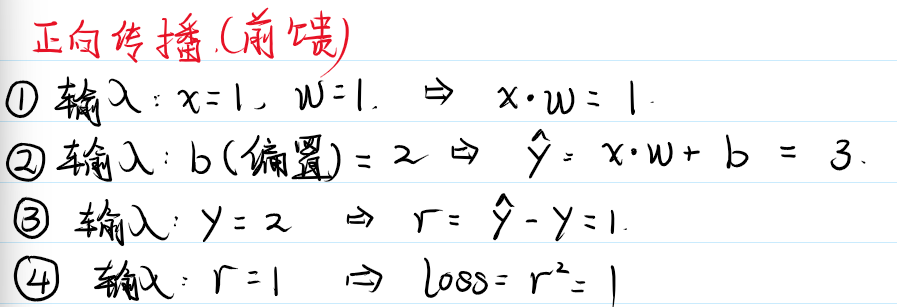 正向传播.(前馈)
① 输入: x=1、w=1. ⇒ x·w=1.
② 输入: b(偏置)=2 ⇒ ŷ = x·w+b = 3.
③ 输入: y=2 ⇒ r=ŷ-y=1.
④ 输入: r=1 ⇒ loss=r²=1